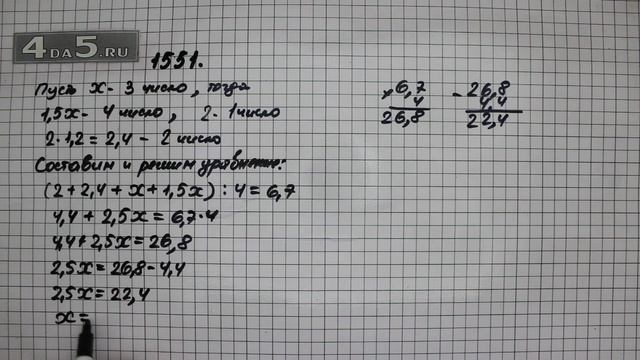 4DA5.RU
1551.
Пусть x - 3 число, тогда
1,5x - 4 число, 2 - 1 число
2·1,2 = 2,4 - 2 число
Составим и решим уравнение:
(2 + 2,4 + x + 1,5x) : 4 = 6,7
4,4 + 2,5x = 6,7·4
4,4 + 2,5x = 26,8
2,5x = 26,8 - 4,4
2,5x = 22,4
x =
× 6,7
4
26,8
- 26,8
4,4
22,4